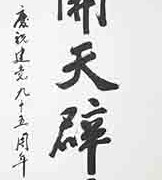 開天辟
慶祝建党九十五周年